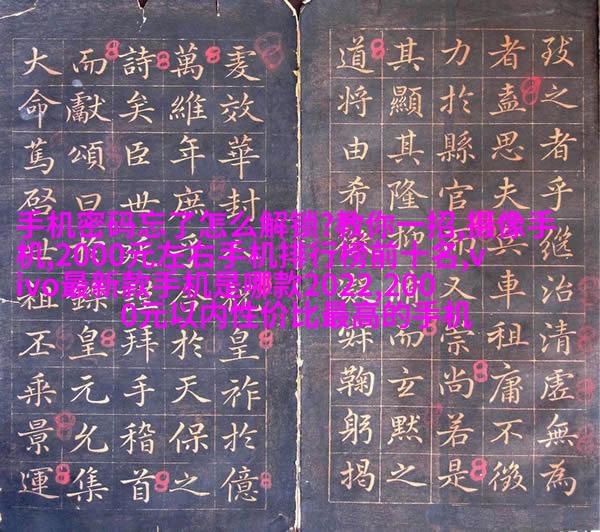 致之者乎繼治清虛無為
者盍思夫兵車租庸不徵
力於縣官而又崇尚若是
其顯其隆抑而玄默之
道將由希鞠躬揭
效華封皇祚於億
萬維年庶於天保之
詩矣臣世拜手稽首
而獻頌曰皇元允集
大命篤祖丕乘景運
手机密码忘了怎么解锁?教你一招,摄像手
机,2000元左右手机排行榜前十名,v
ivo最新款手机是哪款2022,200
0元以内性价比最高的手机